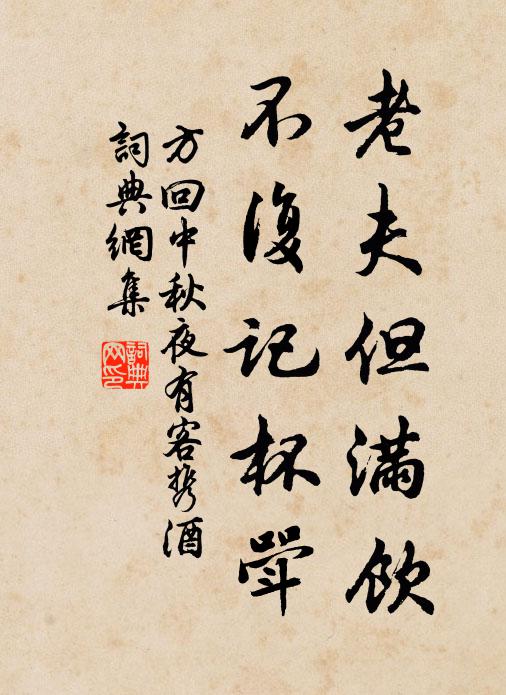 老夫但满饮
不復記杯斝
方回中秋夜有客携酒
詞典網集
詞典
网印